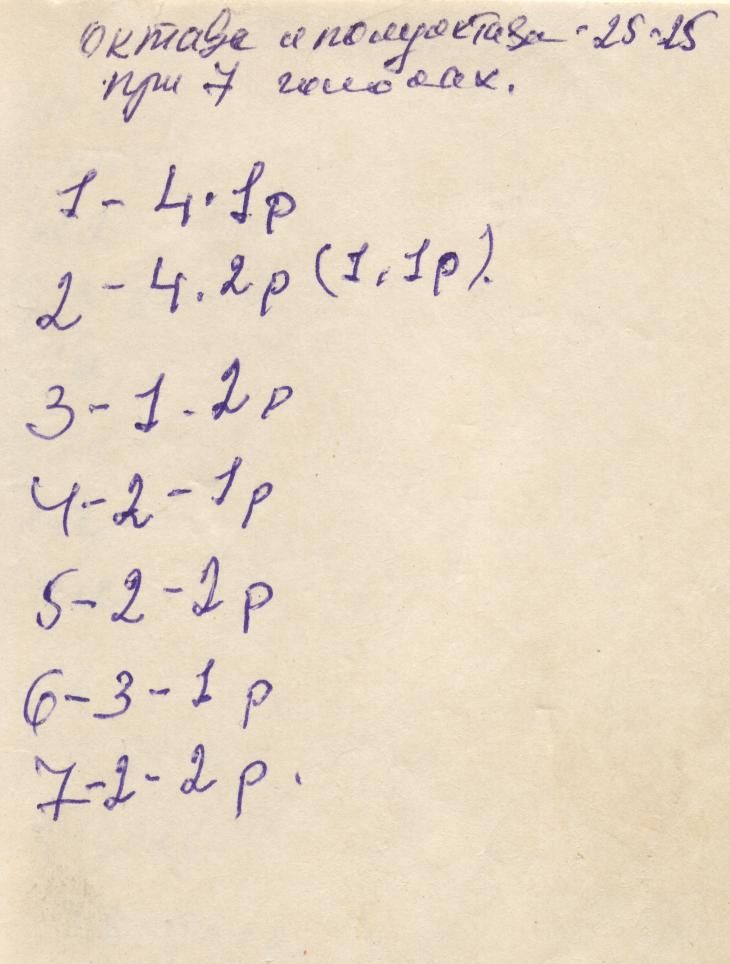 октава и полуоктава - 25-25
при 7 голосах.
1 - 4.1р
2 - 4.2р (1.1р).
3 - 1.2р
4 - 2 - 1р
5 - 2 - 2р
6 - 3 - 1р
7 - 2 - 2р.